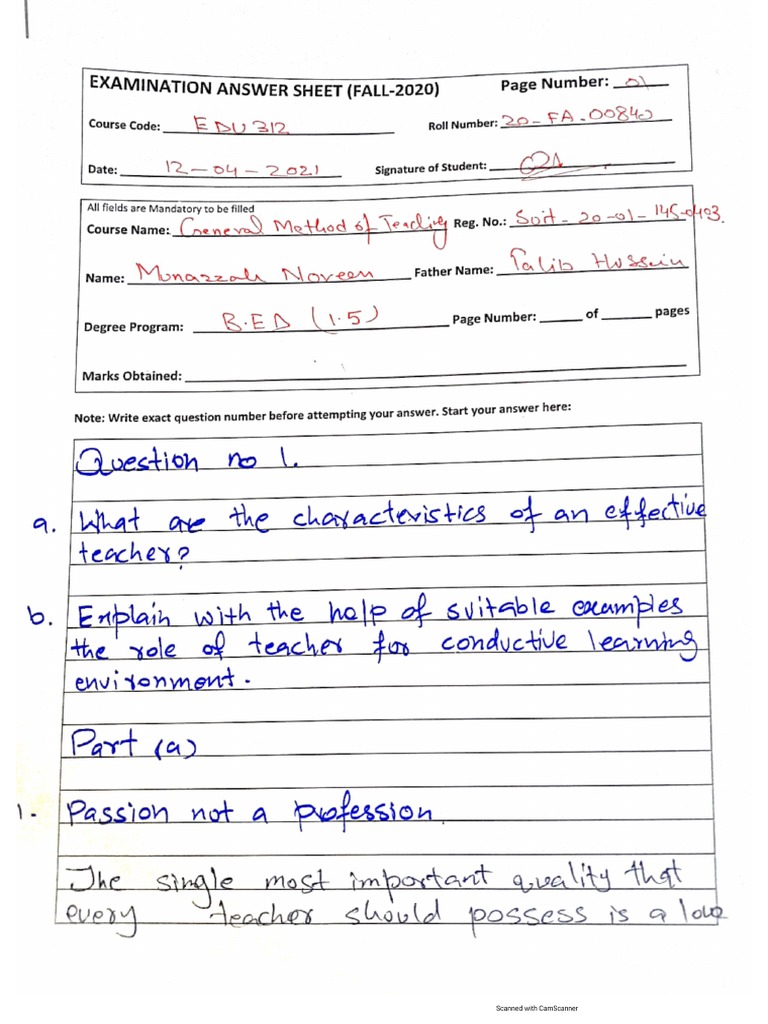 EXAMINATION ANSWER SHEET (FALL-2020) Page Number: 01
Course Code: EDU 312 Roll Number: 20-FA-00840
Date: 12-04-2021 Signature of Student:
All fields are Mandatory to be filled
Course Name: General Method of Teaching Reg. No.: Soit-20-01-145-0403.
Name: Munazzah Noreen Father Name: Talib Hussein
Degree Program: B.ED (1.5) Page Number: ______ of ______ pages
Marks Obtained:
Note: Write exact question number before attempting your answer. Start your answer here:
Question no 1.
a. What are the characteristics of an effective
teacher?
b. Explain with the help of suitable examples
the role of teacher for conductive learning
environment.
Part (a)
1. Passion not a profession.
The single most important quality that
every teacher should possess is a love
Scanned with CamScanner